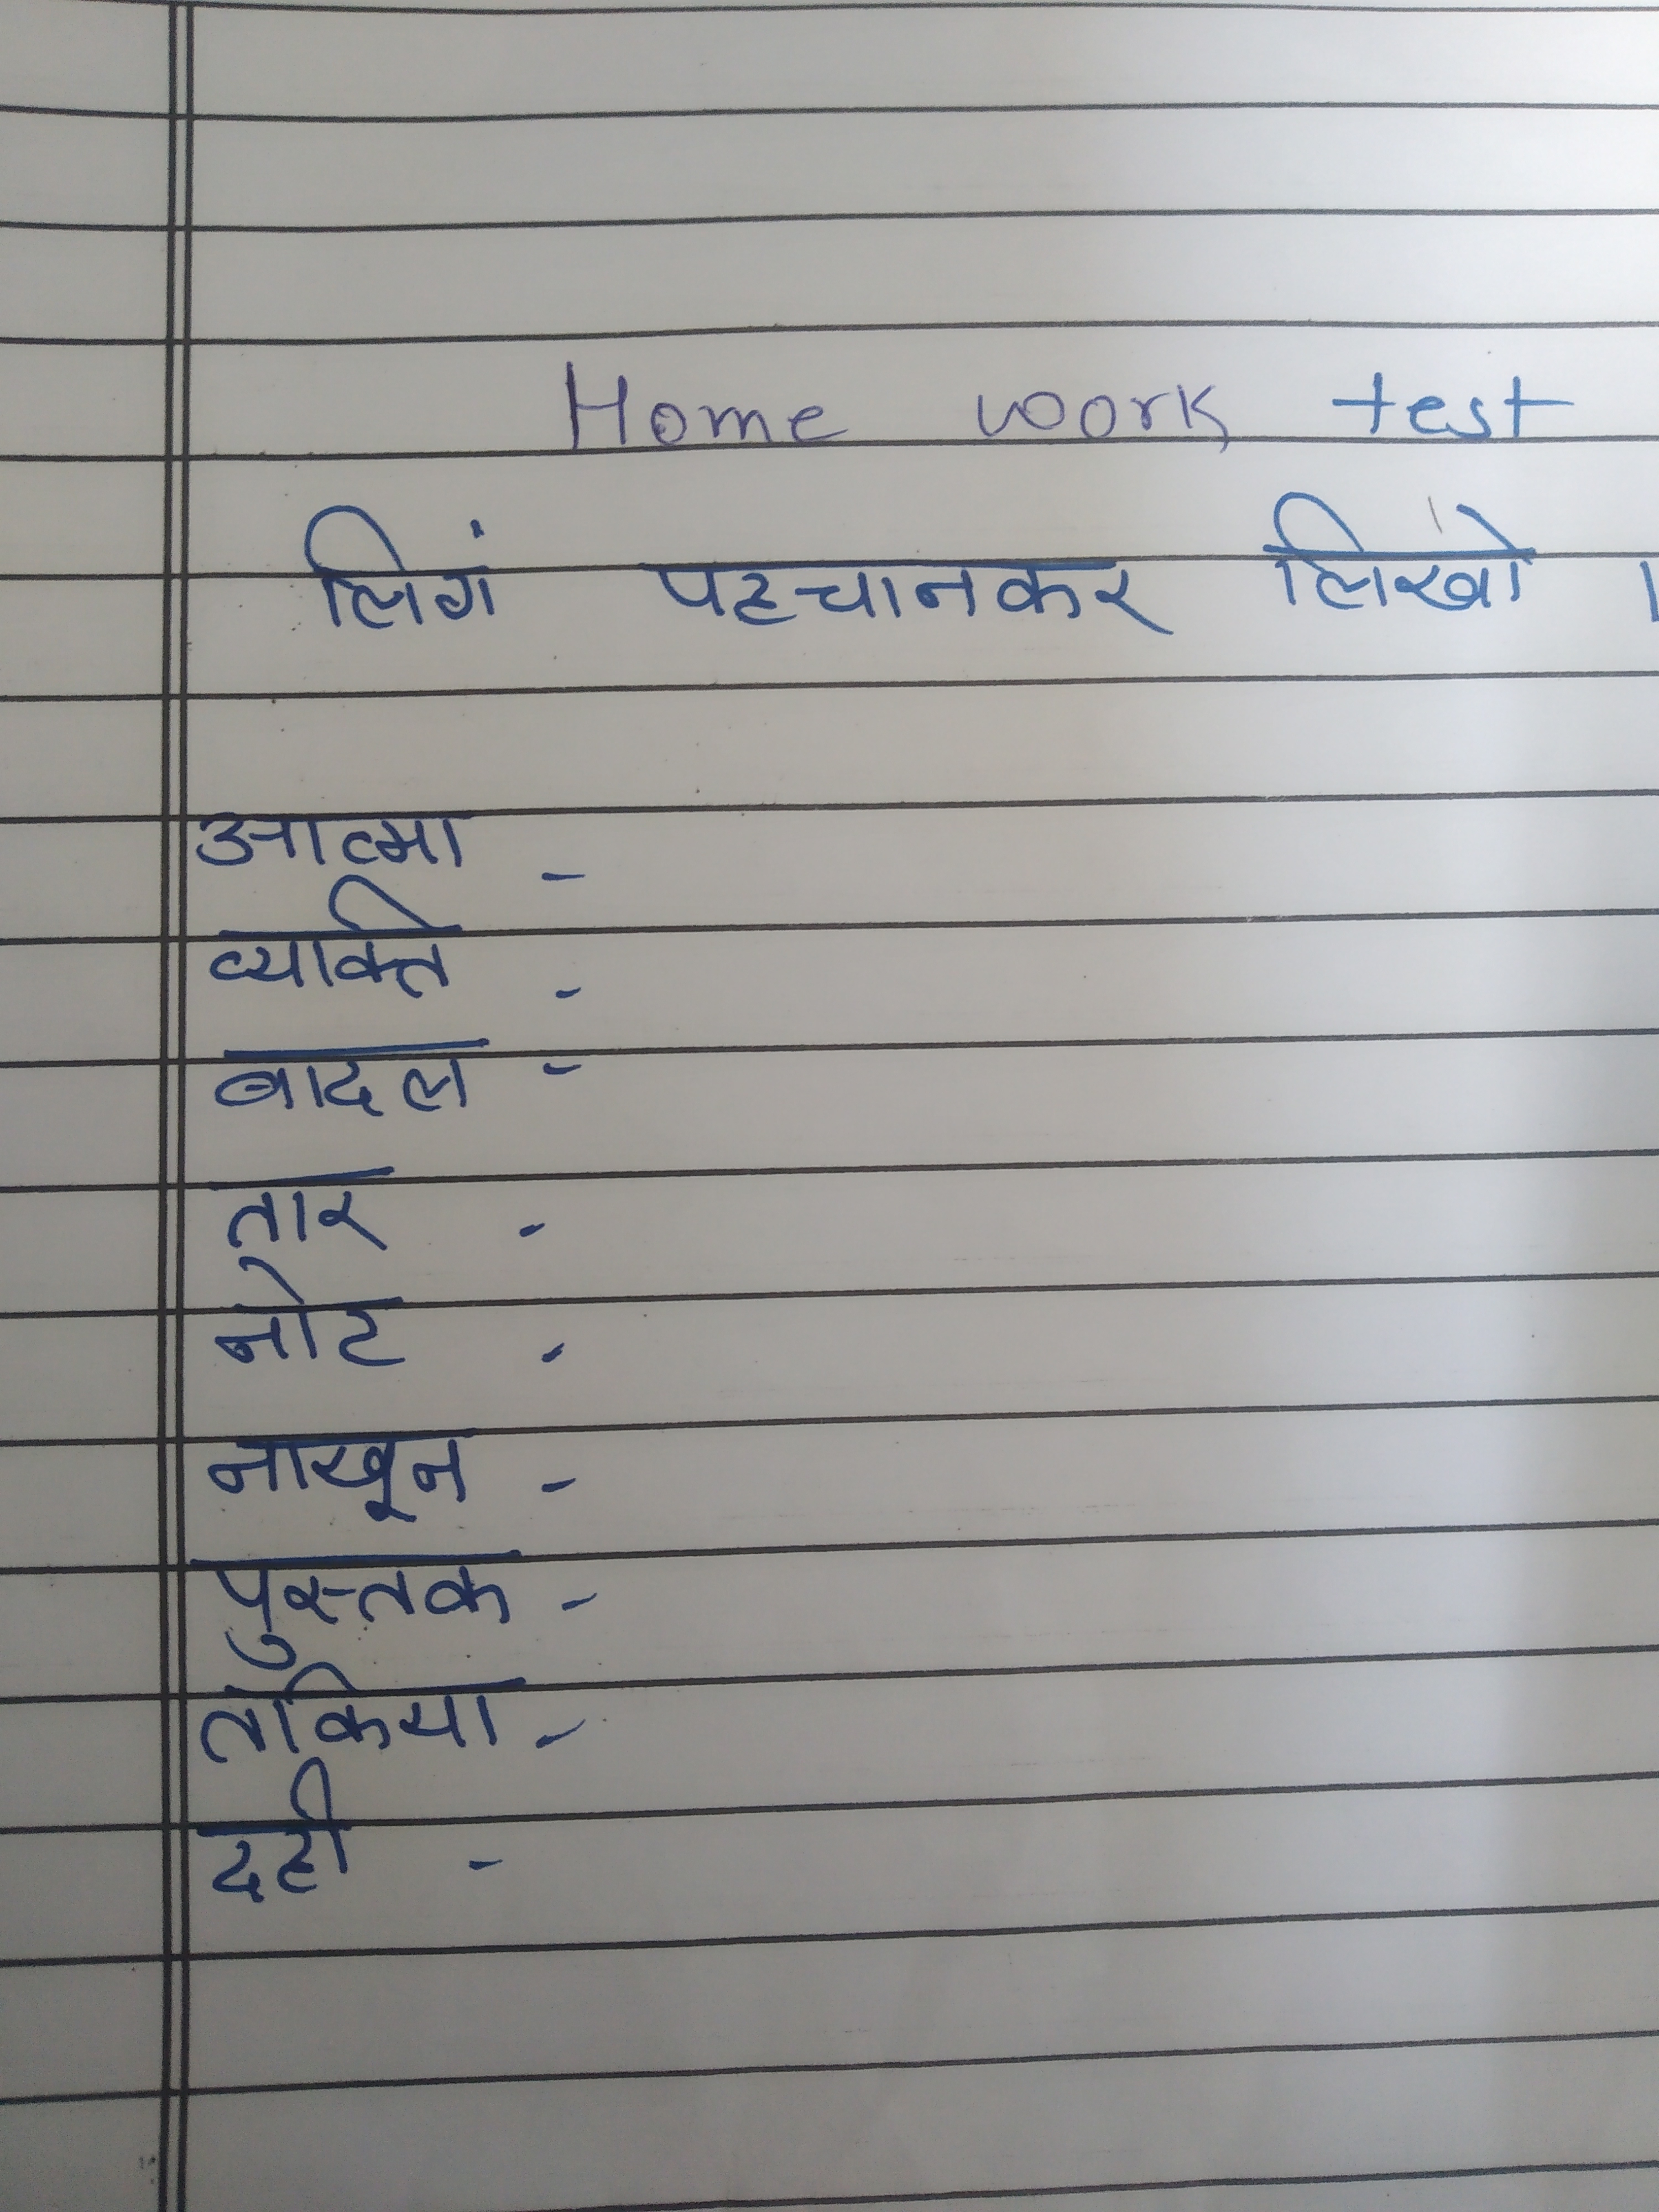 Home work test
लिगं पहचानकर लिखो ।
आत्मा -
व्यक्ति -
बादल -
तार -
नोट -
नाखून -
पुस्तक -
तकिया -
दही -